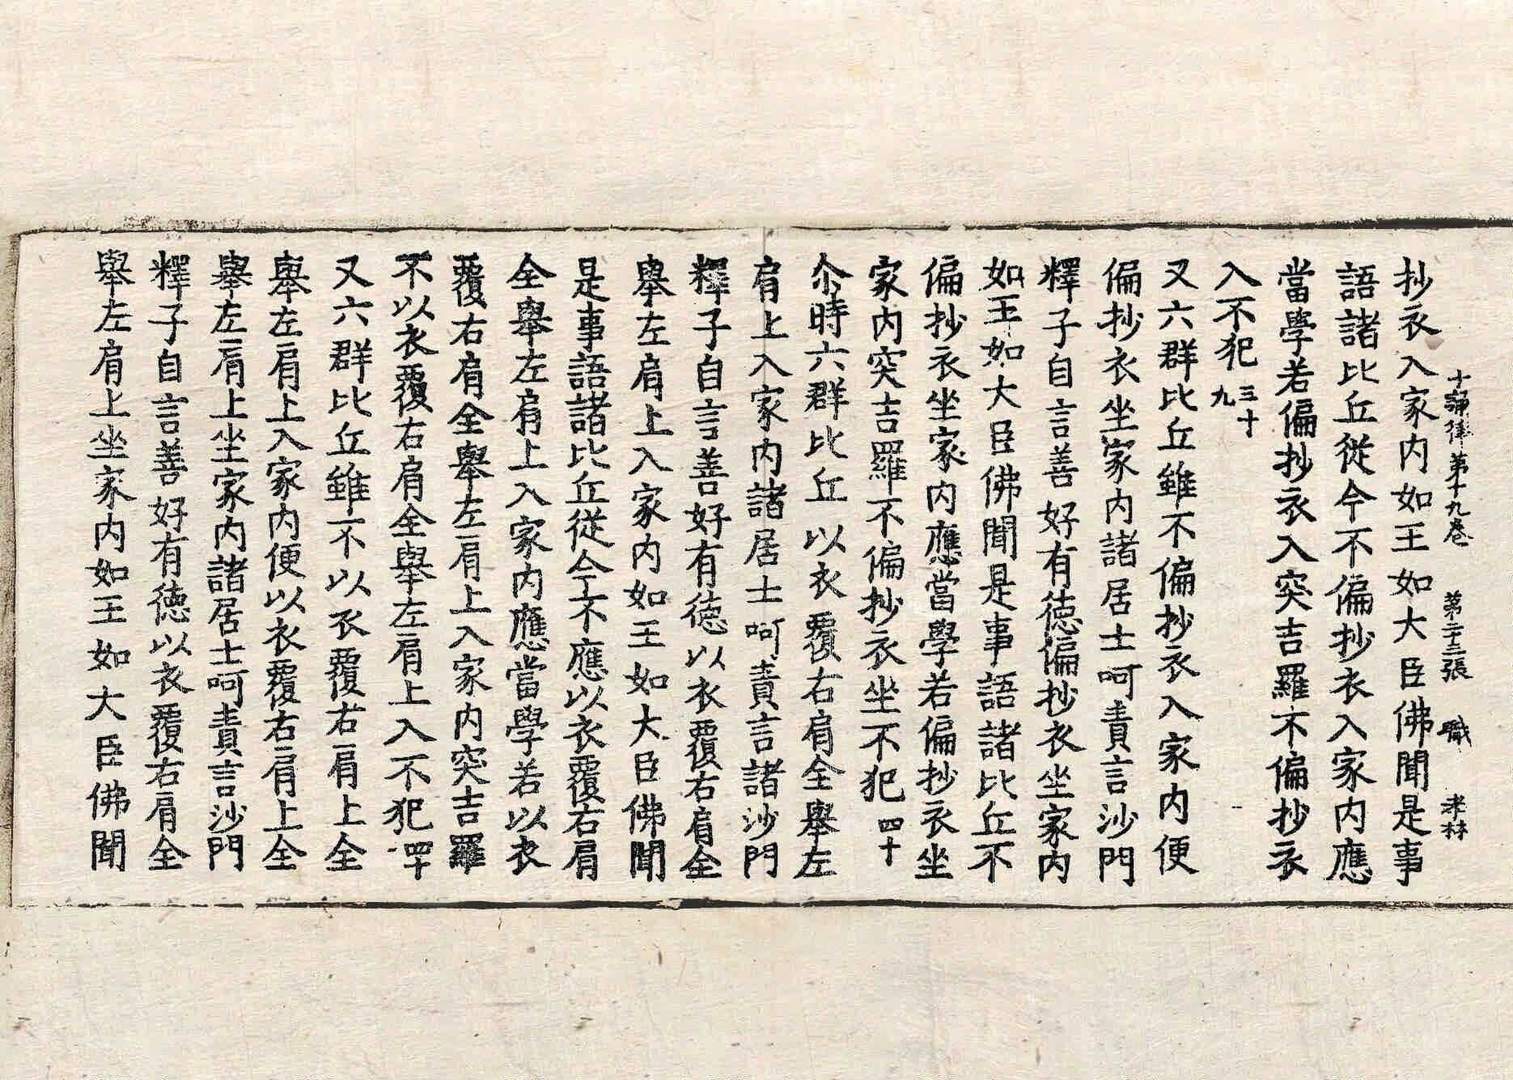 十誦律第十九卷 第二十三張 職 米林
抄衣入家内如王如大臣佛聞是事
語諸比丘從今不偏抄衣入家内應
當學若偏抄衣入突吉羅不偏抄衣
入不犯三十九
又六群比丘雖不偏抄衣入家内便
偏抄衣坐家内諸居士呵責言沙門
釋子自言善好有德偏抄衣坐家内
如王如大臣佛聞是事語諸比丘不
偏抄衣坐家内應當學若偏抄衣坐
家内突吉羅不偏抄衣坐不犯四十
尒時六群比丘以衣覆右肩全舉左
肩上入家内諸居士呵責言諸沙門
釋子自言善好有德以衣覆右肩全
舉左肩上入家内如王如大臣佛聞
是事語諸比丘從今不應以衣覆右肩
全舉左肩上入家内應當學若以衣
覆右肩全舉左肩上入家内突吉羅
不以衣覆右肩全舉左肩上入不犯四十
又六群比丘雖不以衣覆右肩上全
舉左肩上入家内便以衣覆右肩上全
舉左肩上坐家内諸居士呵責言沙門
釋子自言善好有德以衣覆右肩全
舉左肩上坐家内如王如大臣佛聞